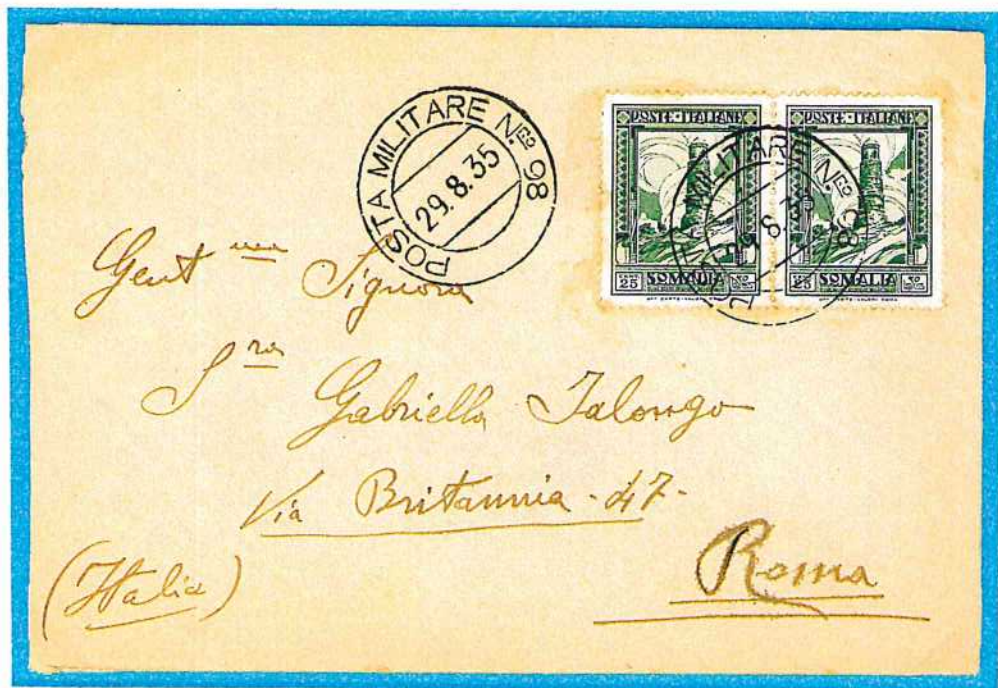 POSTA MILITARE Nᴿᴼ 98
29.8.35
POSTE·ITALIANE
25 SOMALIA
POSTE·ITALIANE
25 SOMALIA
MILITARE Nᴿᴼ 98
Gent ma Signora
S ra Gabriella Ialongo
Via Britannia - 47-
Roma
(Italia)